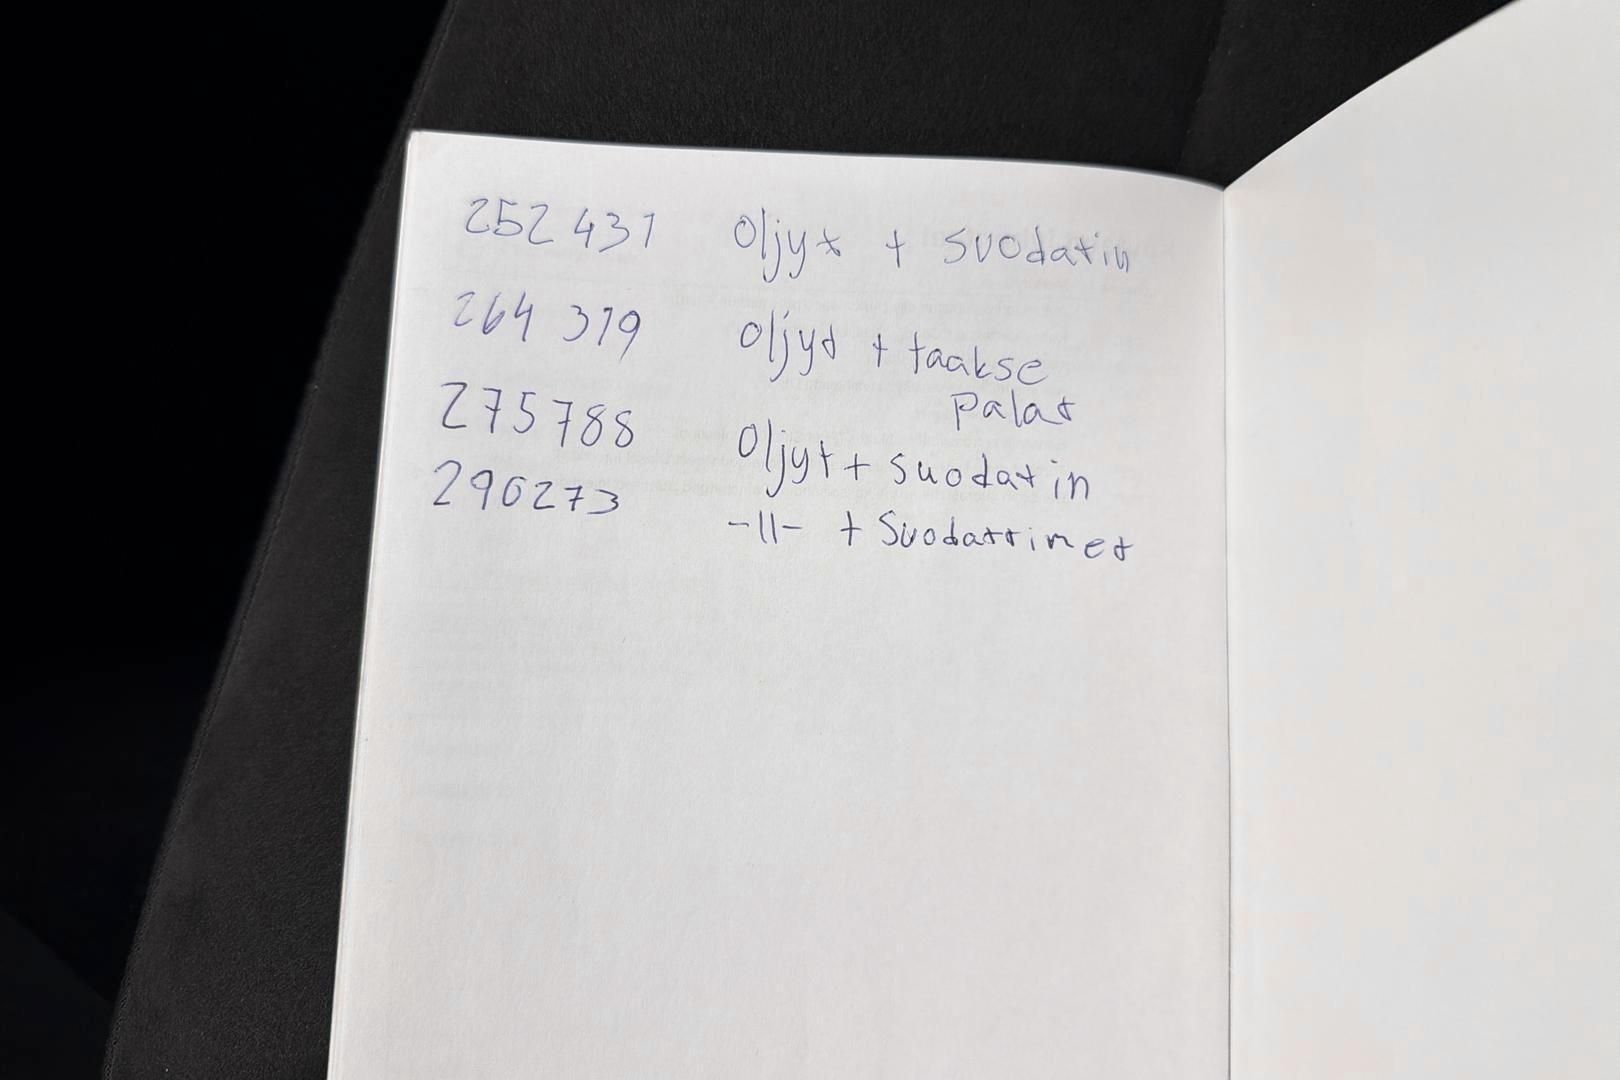 252 431 Oljyt + suodatin
264 319 oljyt + taakse
palat
275 788 Oljyt + suodatin
290273 -||- + Suodattimet